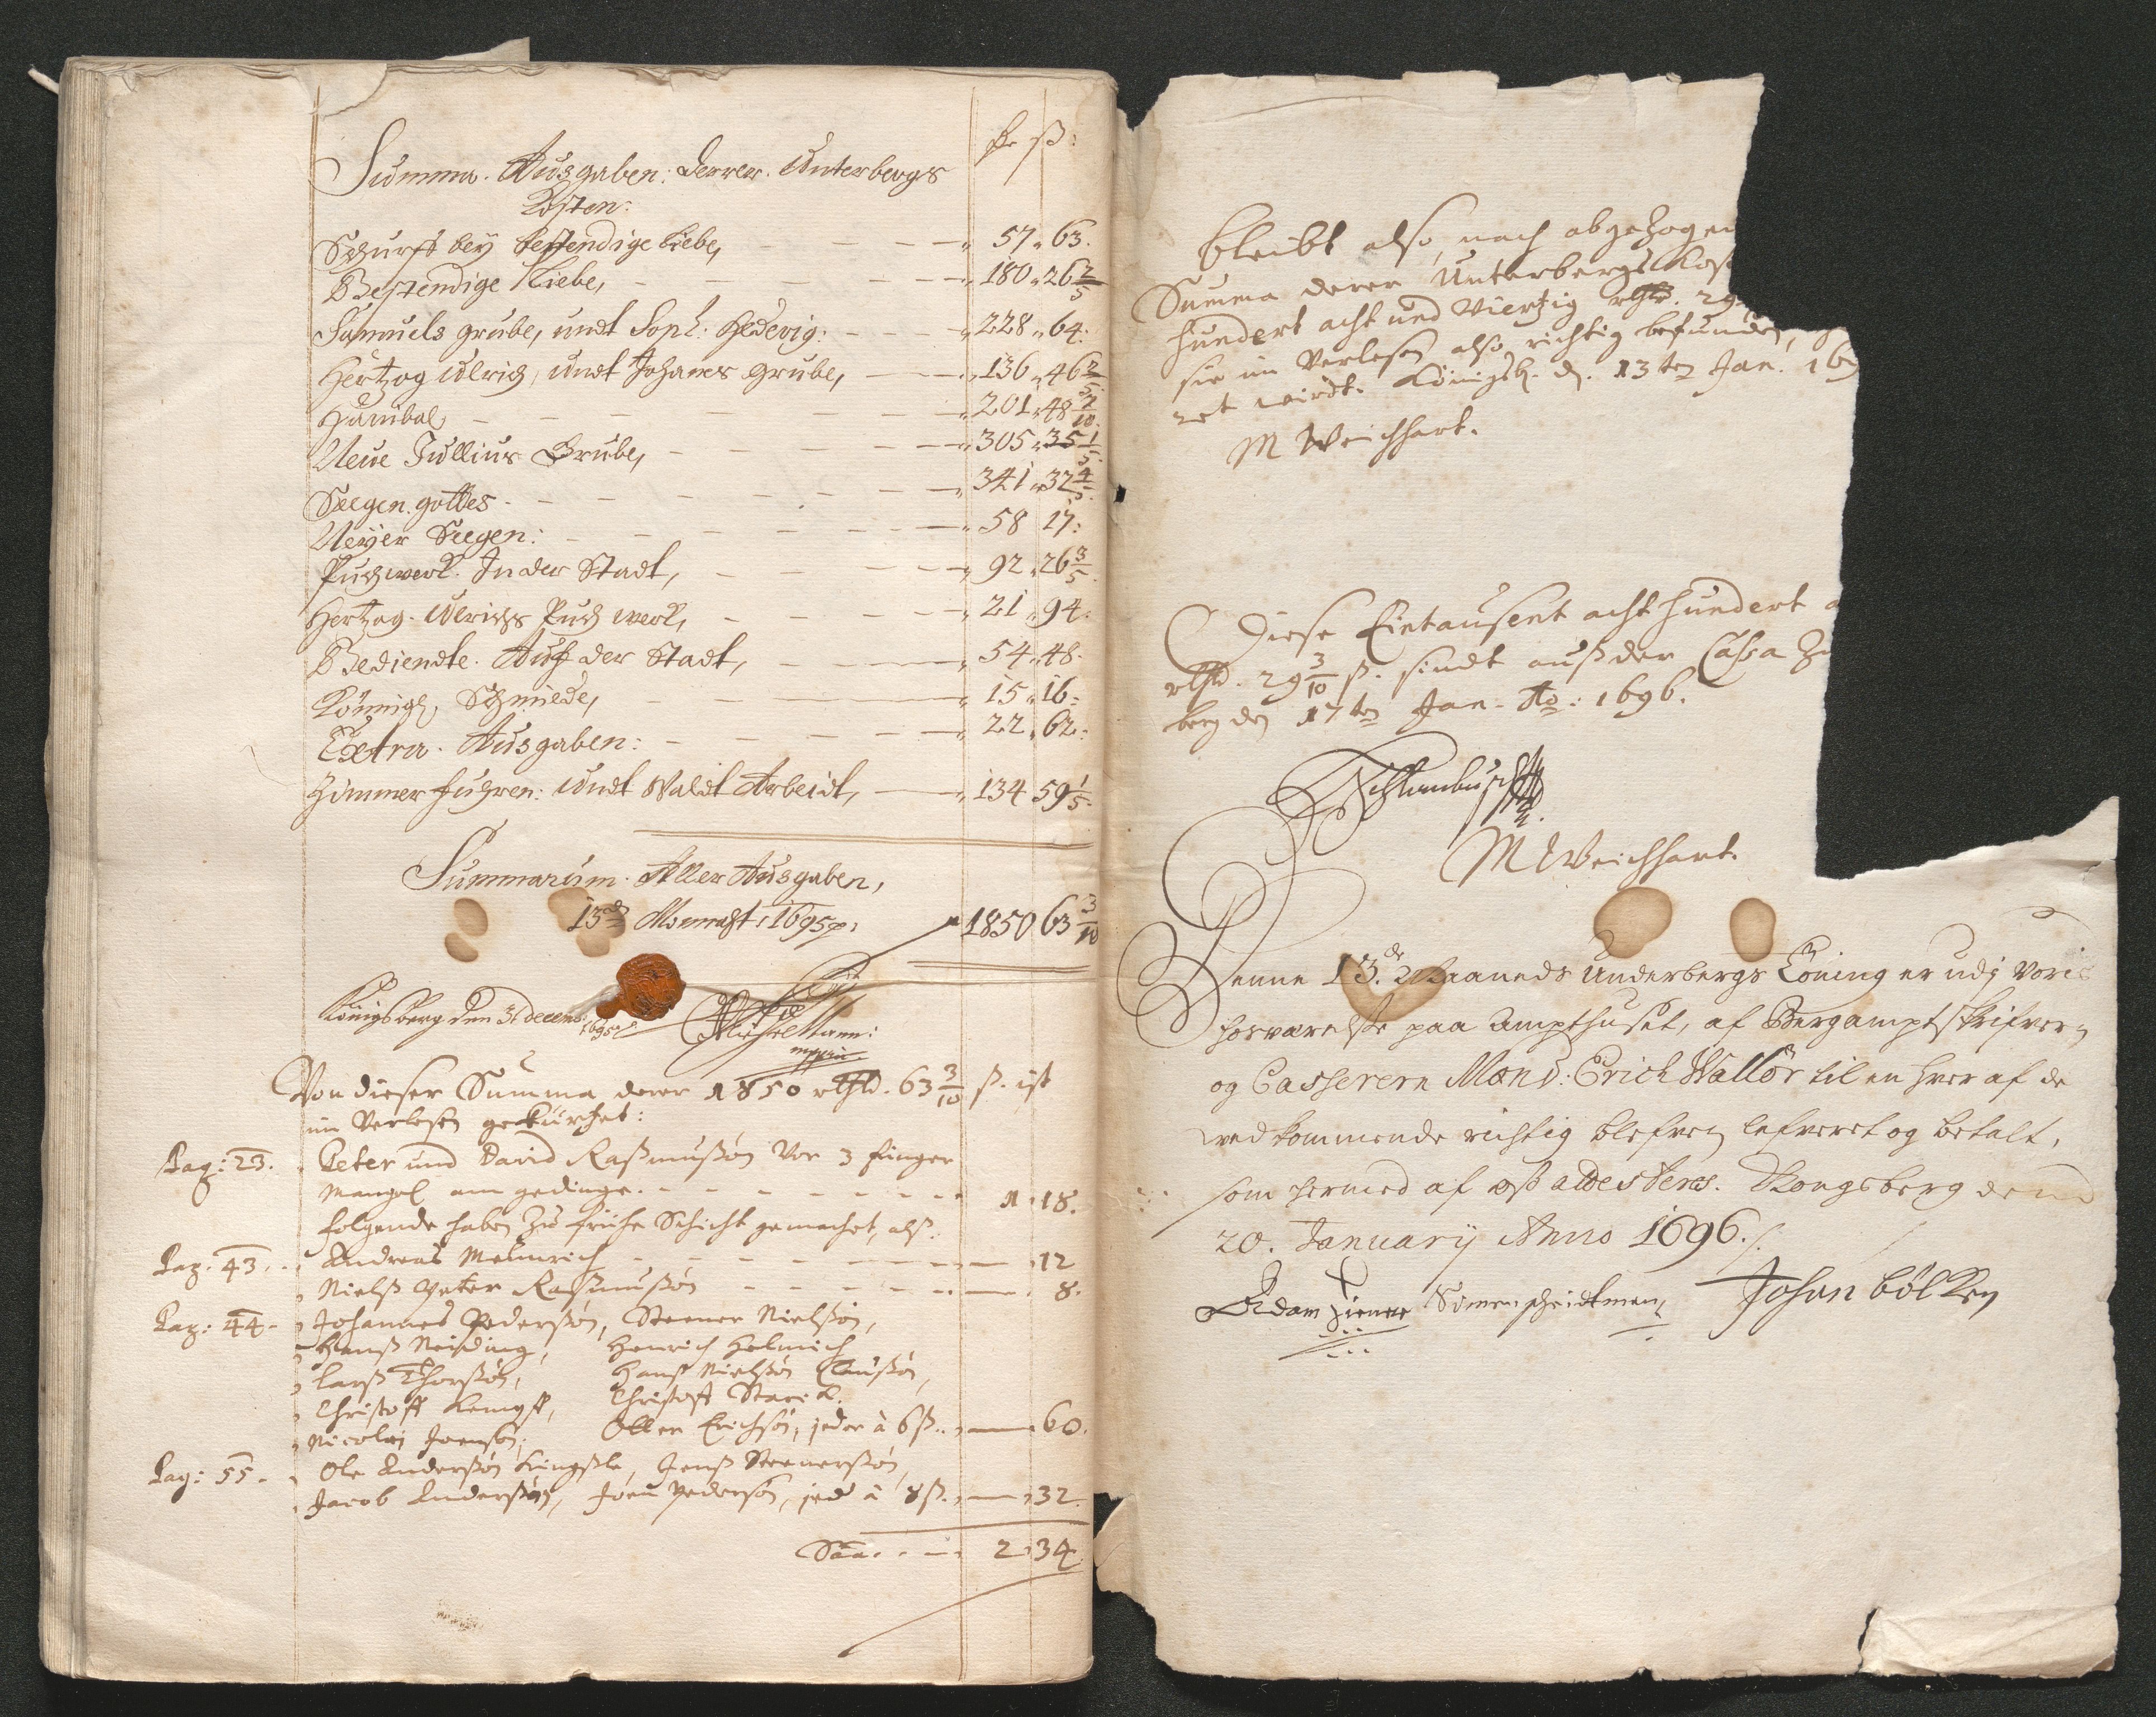 Rdr ß:
Summa. Ausgaben: derer. Unterbergs
Kosten:
Schurff bey bestendige Liebe, 57 „ 63.
Bestendige Liebe, 180 „ 26 2/5
Samuels grube, undt Soph: Hedevig: 228 „ 64.
Hertzog Ulrich, undt Johanes Grube, 136 „ 46 2/5
Hanibal 201 „ 48 7/10
Neue Jullius Grube, 305 „ 35 1/5
Seegen gottes. 341 „ 32 4/5
Neüer Seegen: 58 17:
Puchwerk. In der Stadt, 92 „ 26 3/5
Hertzog. Ulrichs Puch werk, 21 „ 94.
Bediendte. Auf der Stadt, 54 „ 48.
Königl. Schmiede, 15 „ 16:
Extra. Ausgaben: 22 „ 62:
Zimmer fuhren: undt Waldt Arbeidt, 134 59 1/5.
Summarum. Aller Ausgaben,
13de Monnaht, 1695 1850 63 3/10
Königsberg den 31 decemb:
1695
Von dieser Summa derer 1850 rthlr. 63 3/10 ß. ist
im Verlesen gekürtzet:
Pag: 23. Peter und David Raßmußön Vor 3 finger
Mangel am gedinge. 1 „ 18.
folgende haben zu frühe Schicht gemachet, alß.
Pag. 43. Andreas Meinrich 12
Nielß Peter Raßmußön 8.
Pag: 44. Johannes Pederßön, Steener Nielßön,
Hanß Neißding, Henrich Helmich
Larß Thorßön, Hanß Nielßön Claußön,
Christoff Kempff, Christoff Starck.
Nicolaj Joenßön, Oller Erichsön, jeder à 6 ß. 60.
Pag: 55. Ole Anderßön Kingßle, Jenß Steenerßön,
Jacob Anderßön, Joen Pederßön, jed à 8 ß. 32.
Sa 2 „ 34.
bleibt also, nach abgezogen
Summa derer Unterbergs Kos
hundert acht und Viertzig rthlr. 29
sie im Verlesen also richtig befunden,
ret wirdt. Königsb. d. 13ten Jan. 169
M Weichhart.
Diese Eintausent acht hundert
rthlr. 29 3/10 ß. sindt auß der Cassa
berg den 17ten Jan. Ao: 1696.
M Weichhart.
Denne 13de Maaneds Underbergs Löning er udj Voris
hosværelse paa Ampthuset, af Bergamptskrifver
og Casserern Mons: Erich Wallör til en hver af de
ved kommende richtig blefven lefveret og betalt,
som hermed af oß attesteres. Kongsberg dend
20. Januarij Anno 1696.
Adam Ziener Simen scheidtman, Johan bölken